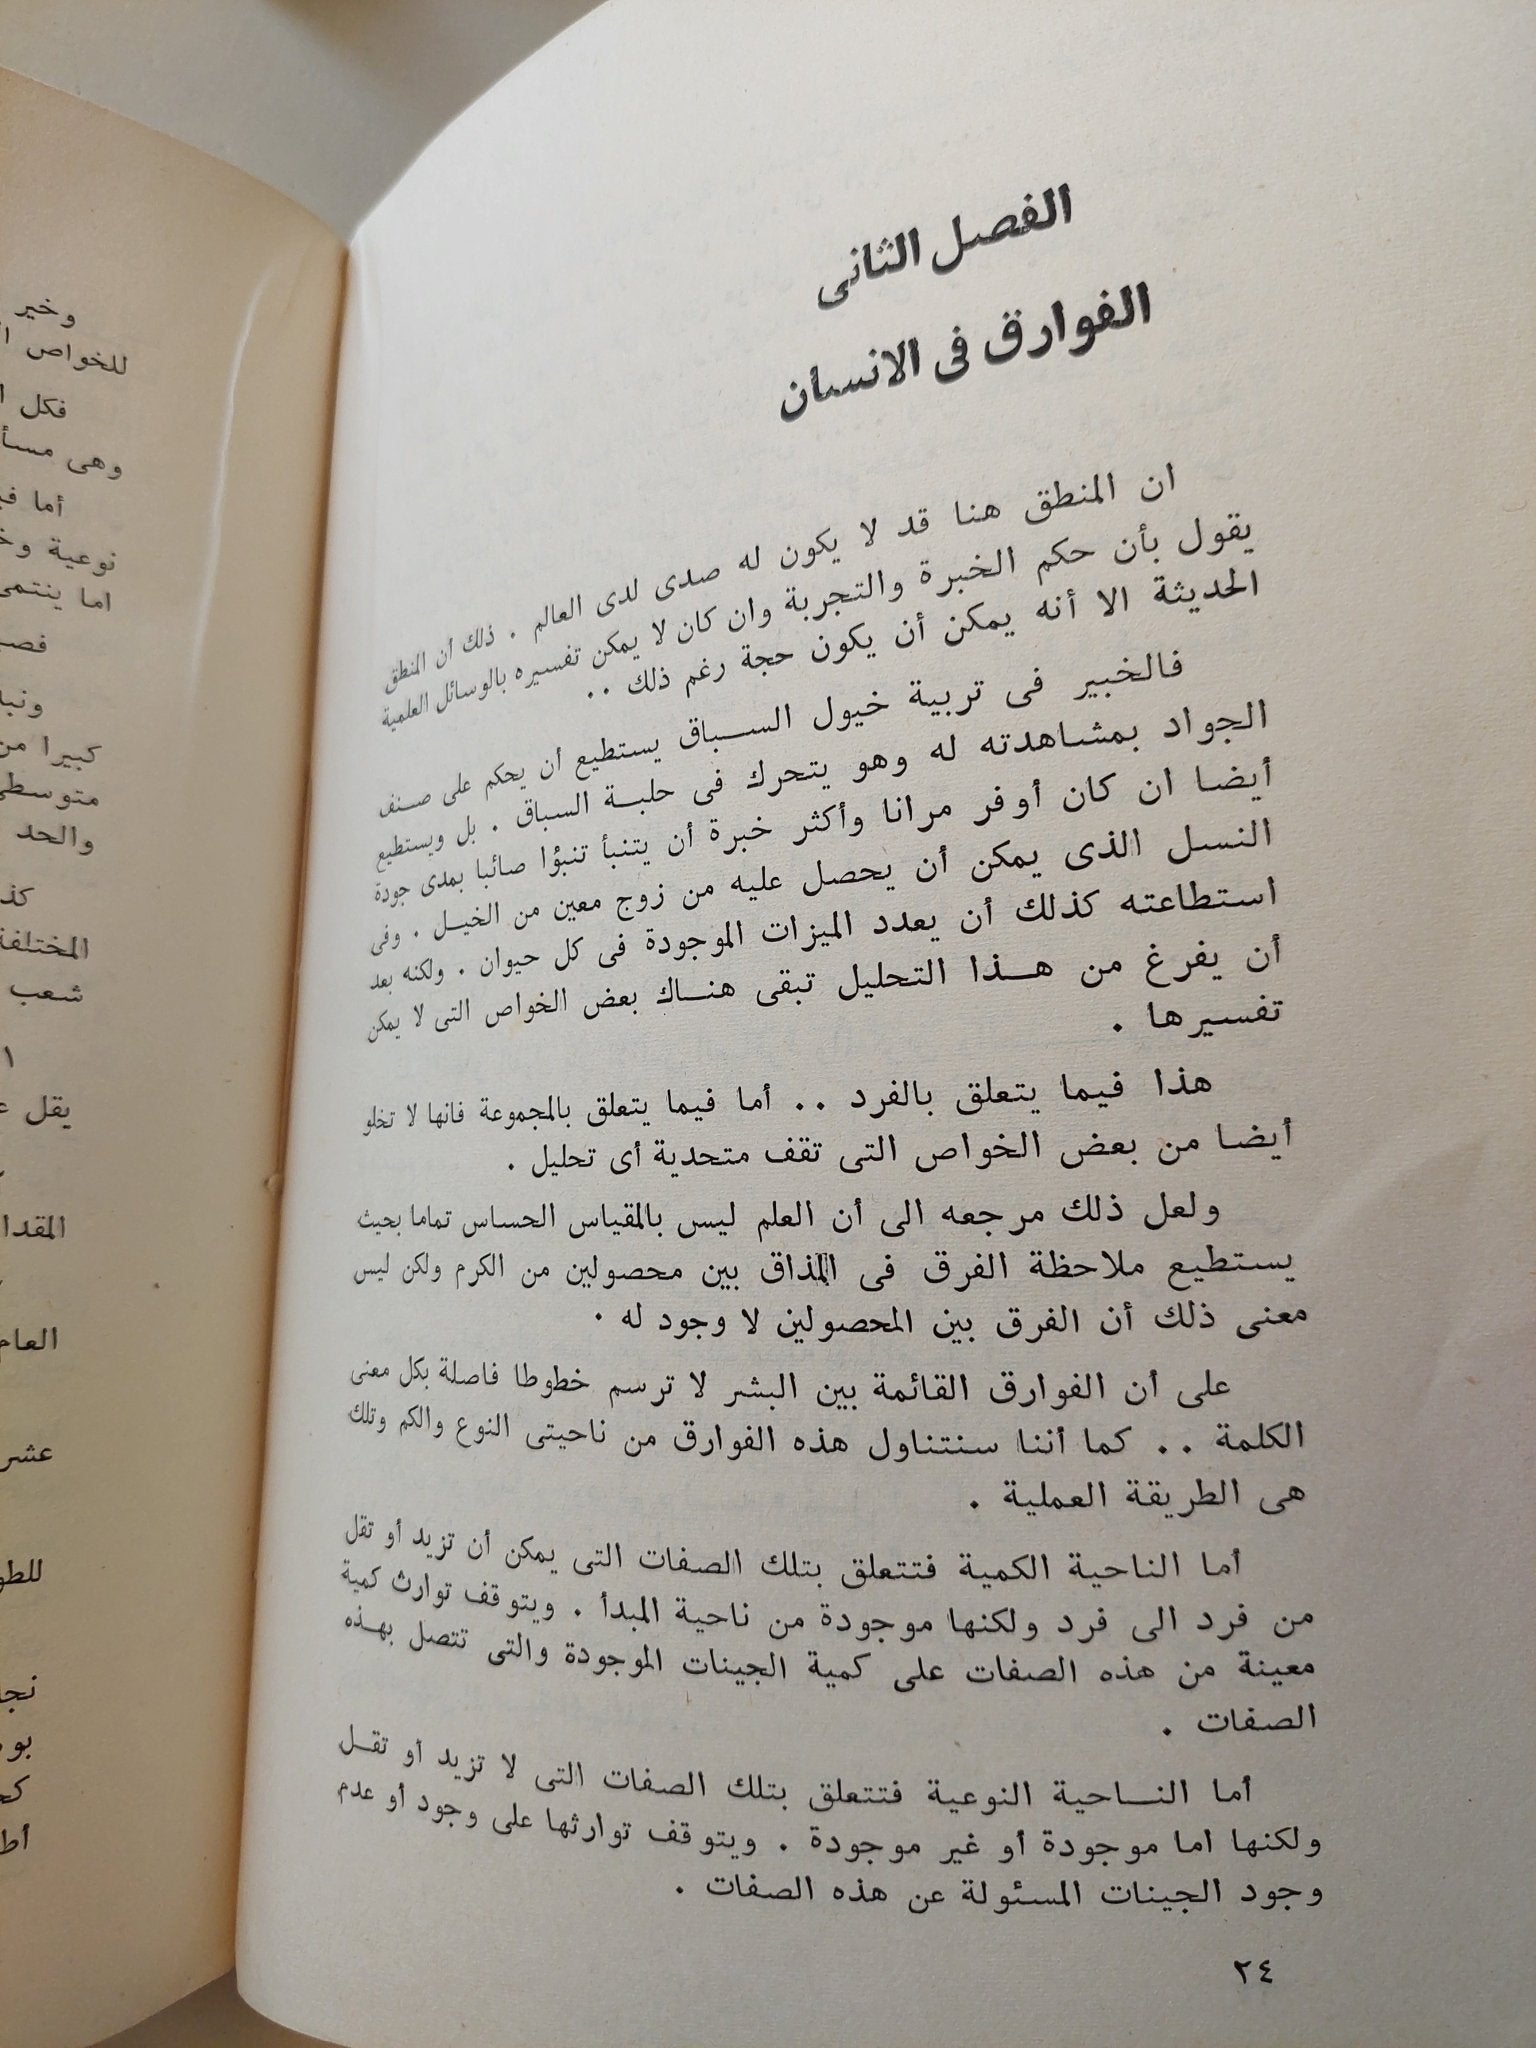 الفصل الثانى
الفوارق فى الانسان
ان المنطق هنا قد لا يكون له صدى لدى العالم . ذلك أن المنطق
يقول بأن حكم الخبرة والتجربة وان كان لا يمكن تفسيره بالوسائل العلمية
الحديثة الا أنه يمكن أن يكون حجة رغم ذلك ..
فالخبير فى تربية خيول السباق يستطيع أن يحكم على صنف
الجواد بمشاهدته له وهو يتحرك فى حلبة السباق . بل ويستطيع
أيضا ان كان أوفر مرانا وأكثر خبرة أن يتنبأ تنبؤا صائبا بمدى جودة
النسل الذى يمكن أن يحصل عليه من زوج معين من الخيل . وفى
استطاعته كذلك أن يعدد الميزات الموجودة فى كل حيوان . ولكنه بعد
أن يفرغ من هذا التحليل تبقى هناك بعض الخواص التى لا يمكن
تفسيرها .
هذا فيما يتعلق بالفرد .. أما فيما يتعلق بالمجموعة فانها لا تخلو
أيضا من بعض الخواص التى تقف متحدية أى تحليل .
ولعل ذلك مرجعه الى أن العلم ليس بالمقياس الحساس تماما بحيث
يستطيع ملاحظة الفرق فى المذاق بين محصولين من الكرم ولكن ليس
معنى ذلك أن الفرق بين المحصولين لا وجود له .
على أن الفوارق القائمة بين البشر لا ترسم خطوطا فاصلة بكل معنى
الكلمة .. كما أننا سنتناول هذه الفوارق من ناحيتى النوع والكم وتلك
هى الطريقة العملية .
أما الناحية الكمية فتتعلق بتلك الصفات التى يمكن أن تزيد أو تقل
من فرد الى فرد ولكنها موجودة من ناحية المبدأ . ويتوقف توارث كمية
معينة من هذه الصفات على كمية الجينات الموجودة والتى تتصل بهذه
الصفات .
أما الناحية النوعية فتتعلق بتلك الصفات التى لا تزيد أو تقل
ولكنها اما موجودة أو غير موجودة . ويتوقف توارثها على وجود أو عدم
وجود الجينات المسئولة عن هذه الصفات .
٢٤
وخير
للخواص
فكل
وهى
أما
نوعية
اما ينتمى
كبيرا من
والحد
المختلفة
شعب
١
يقل
العام
عشر